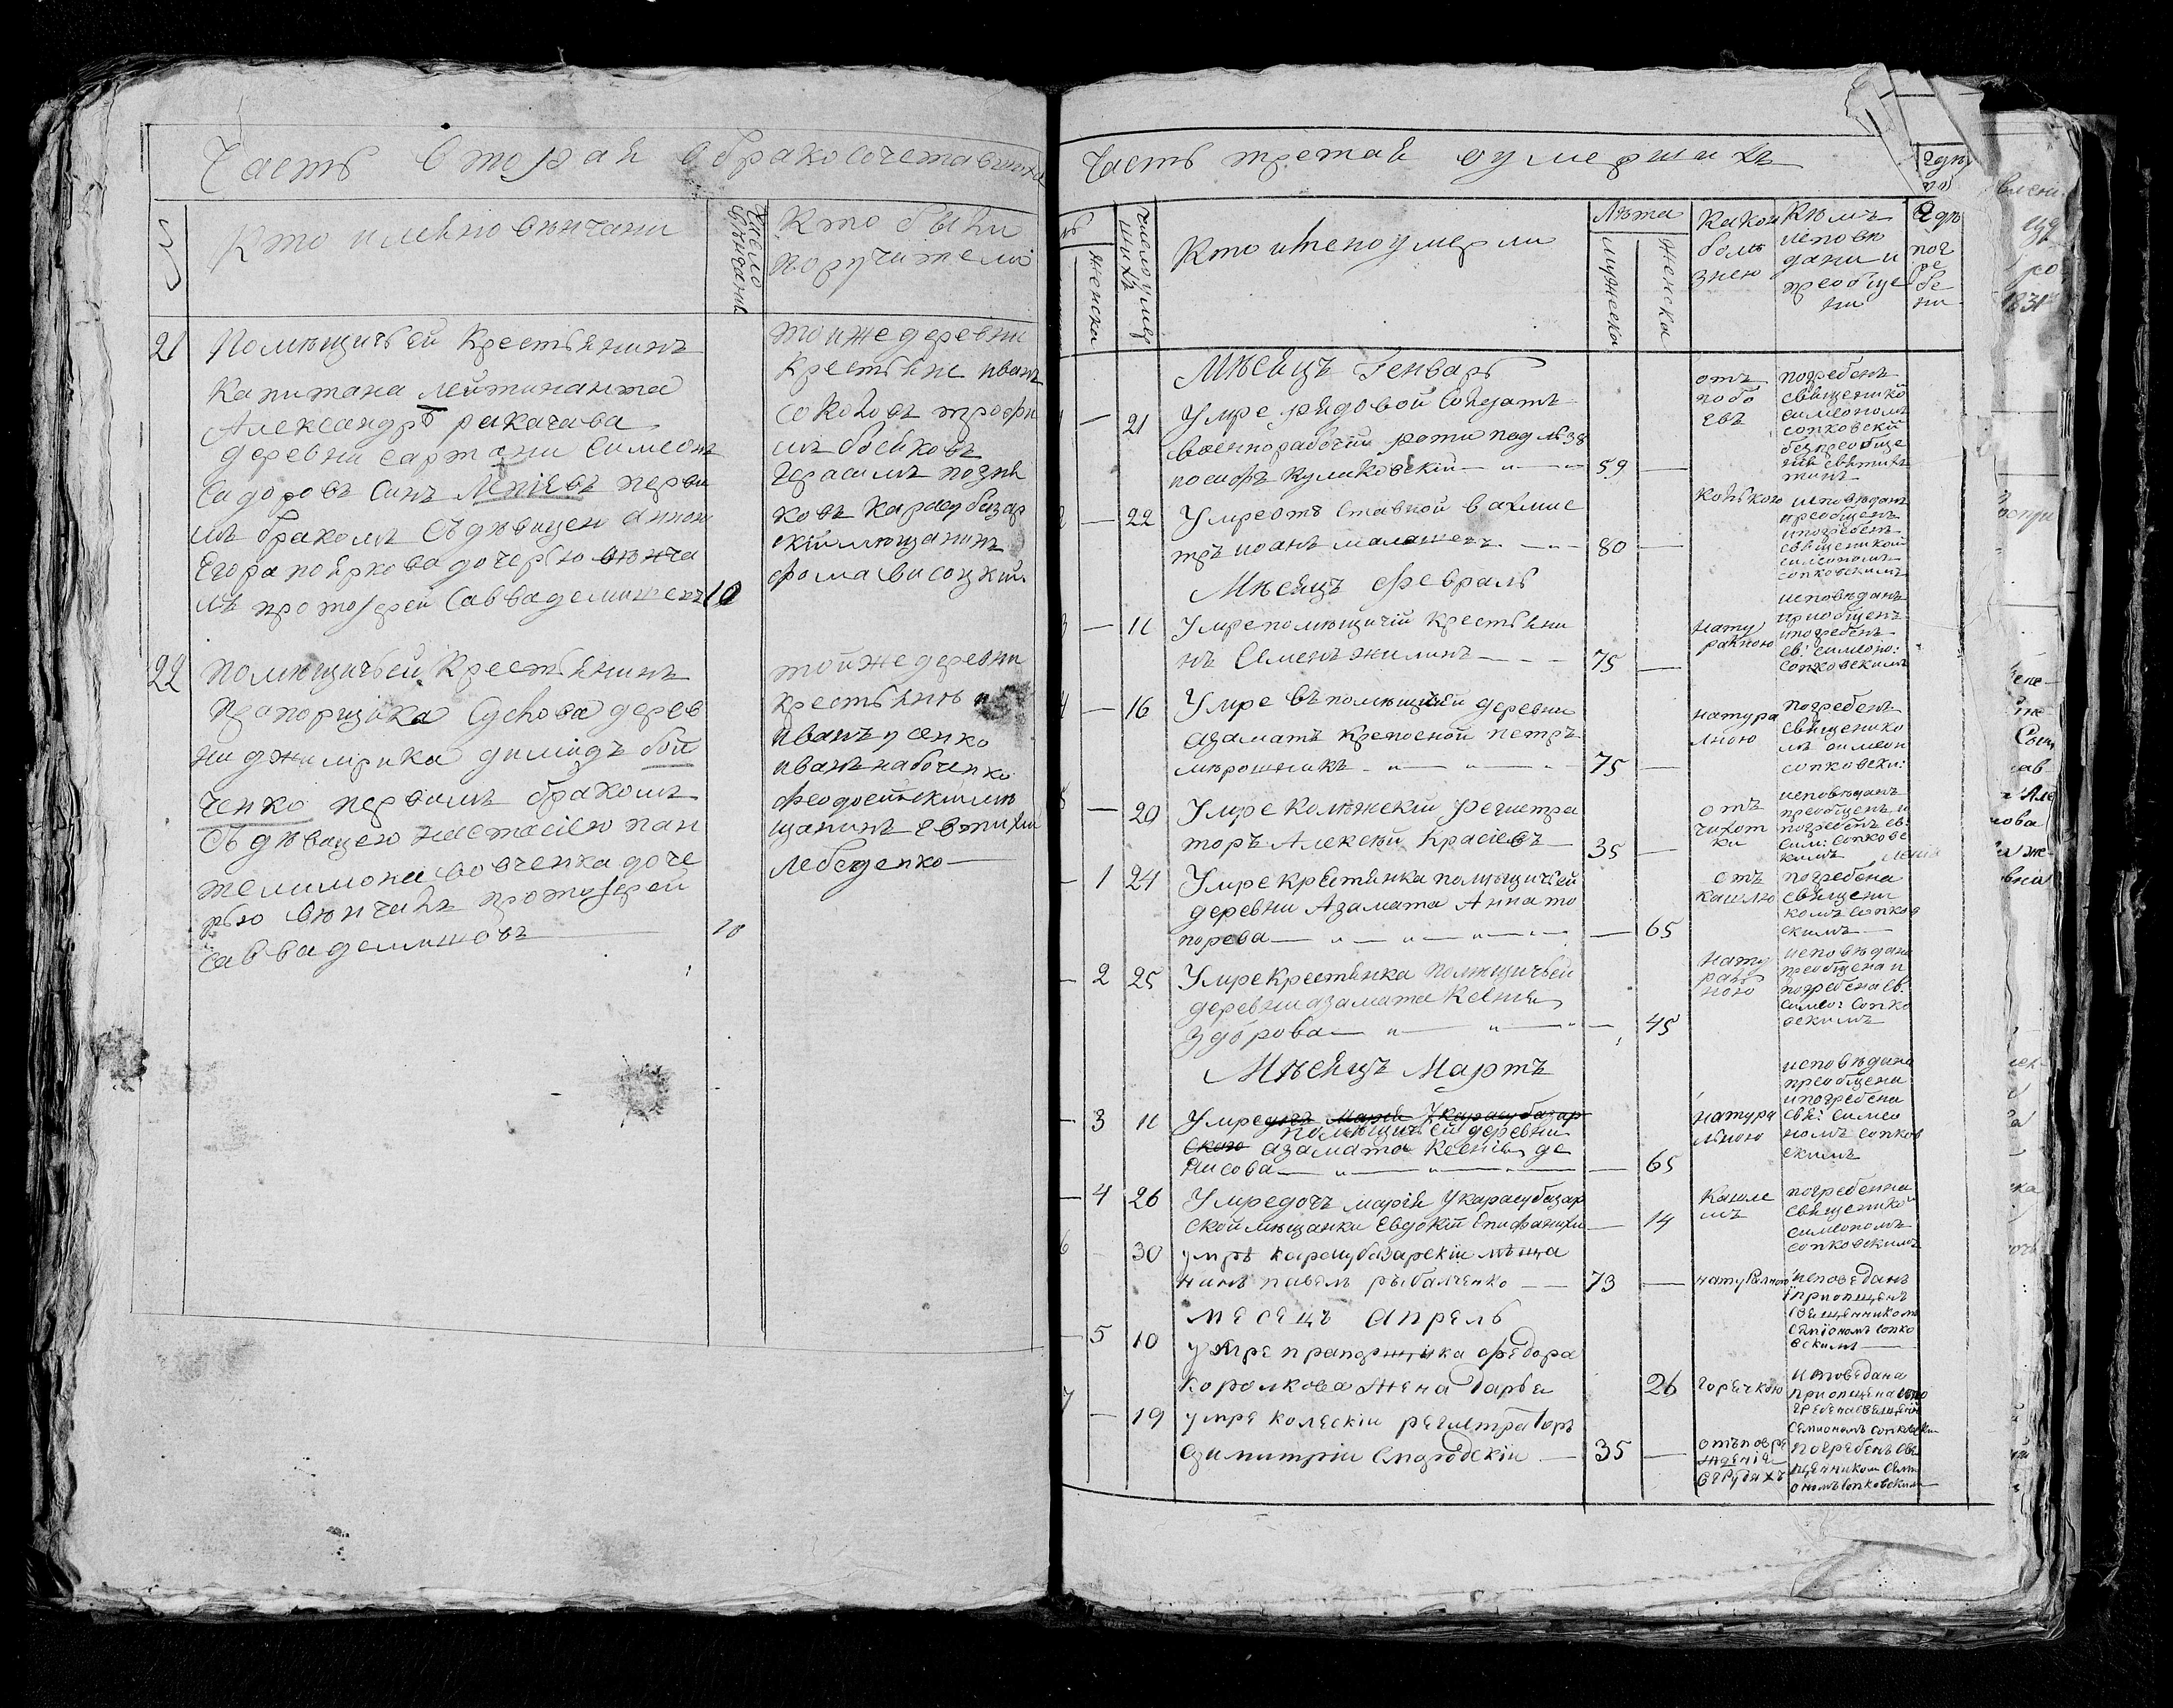 Часть вторая обракосочетавшихся
Кто имѣно вѣнчани
Число
Кто были
поручители
21
Помѣщичьей Крестьянинъ
Капитана лейтинанта
Александра ракачова
деревни сартани Симеонъ
Сидоровъ Синъ Лепіевъ перви
мъ бракомъ съ дѣвицею анною
Егора пояркова дочерью вѣнча
лъ протоіерей Савва демишевъ
10
тойже деревни
Крестьяне иванъ
соколовъ трофи
мъ бойковъ
Герасимъ позня
ковъ Карасубазар
скій мѣщанинъ
фома висоцкий
22
помѣщичьей Крестьянинъ
прапорщика Суслова дерев
ни
ченко первимъ бракомъ
съ дѣвицею настасіею пан
телимона вовченка доче
рью вѣнчалъ протоіерей
савва демишовъ
10
тойже деревни
крестьянѣ
иванъ усенко
иванъ набоченко
феодосійскій мѣ
щанинъ евтихи
Лебеденко
Часть третая оумершихъ
женска
Число умер
шихъ
Кто имено умерли
Лѣта
мужеска
женска
Какой
болѣ
знею
Кѣмъ
исповѣ
дани и
преобще
ни
Гдѣ
пог
ре
бе
ни
Мѣсяцъ Генварь
— 21
Умре рядовой Солдатъ
военнорабочій роти под № 38
иосифъ куликовскій — 59 —
отъ
побо
евъ
погребенъ
священико
симеономъ
сопковскій
безпреобще
нія святихъ
таинъ
— 22
Умре отъ Ставной вахмис
тръ иоанъ малашенъ — 80 —
колькою
исповѣданъ
преобщенъ
ипогребенъ
священикой
симеономъ
сопковскимъ
Мѣсяцъ февраль
3 — 11
Умре помѣщичій крестьяни
нъ Семенъ жилинъ — 75 —
нату
ралною
исповѣданъ
приобщенъ
ипогребенъ
св: симеоно:
сопковскимъ
4 — 16
Умре въ помѣщичьей деревни
азаматъ крепосной петръ
мѣрошникъ — 75 —
натура
лною
погребенъ
священико
мъ симеон
сопковски:
5 — 20
Умре Колѣжскій регистра
торъ Алексѣй Красіевъ — 35 —
отъ
чихот
ки
исповѣданъ
преобщенъ и
погребенъ св:
сим: сопковс
кимъ
— 1 24
Умре крестянка помѣщичьей
деревни Азамата Анна то
порева — 65
отъ
кашлю
погребена
священи
комъ сопков
скимъ
— 2 25
Умре Крестянка помѣщичьей
деревни азамата Ксенія
Здорова — 45
нату
раль
ною
исповѣдана
преобщена и
погребена св:
симео: сопко
вскимъ
Мѣсяцъ Мартъ
— 3 11
Умре дочъ Марія Укарасубазар
помѣщичьей деревни
ской азамата Ксенія де
нисова — 65
натура
льною
исповѣдана
преобщена
ипогребена
свя: симео
номъ сопков
скимъ
— 4 26
Умре дочъ марія Укарасубазар
ской мѣщанки Евдокіи Епифанихи — 14
Кашле
мъ
погребенна
священико
симеономъ
сопковскимъ
6 — 30
умрѣ карасубазарскіи мѣща
нинъ павелъ рыбалченко — 73 —
натуралною
исповѣданъ
приопщенъ
священникомъ
семіономъ сопко
вскимъ
Месецъ Апрель
— 5 10
умре прапорщика федора
Королкова жена дарья 26
горячкою
исповедана
приопщена ипо
гребена
семиономъ сопковски
7 — 19
умре колескіи регистраторъ
димитріи — 35 —
отъ повре
жденія
погребенъ свя
щенником сими
ономъ сопковским